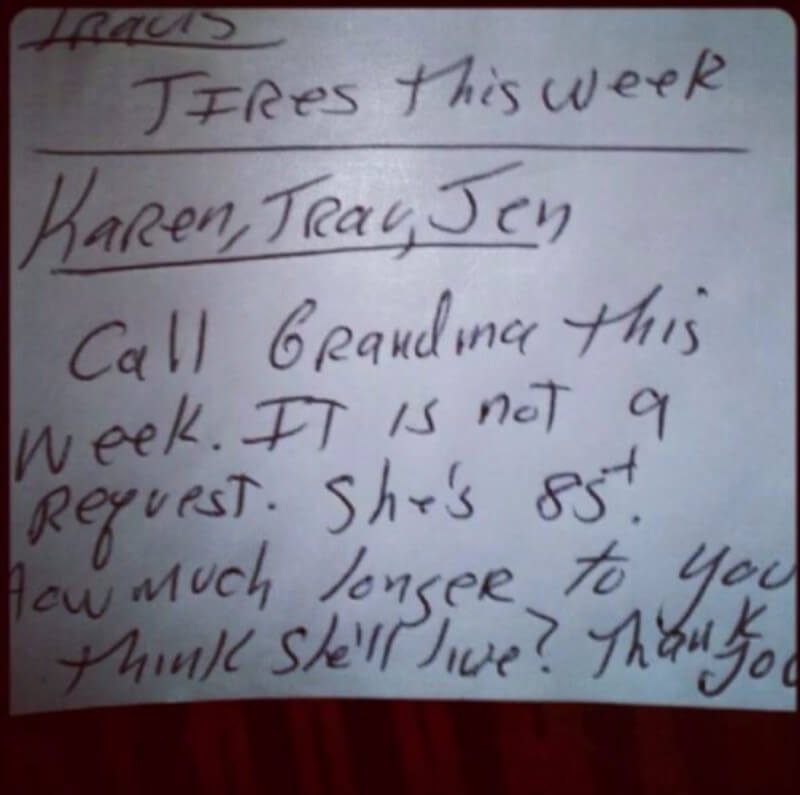 Travis
TIRes this week
KaRen, Trav, Jen
Call GRandma this
week. IT is not a
Request. She's 85+.
How much longer to you
think she'll live? Thank you